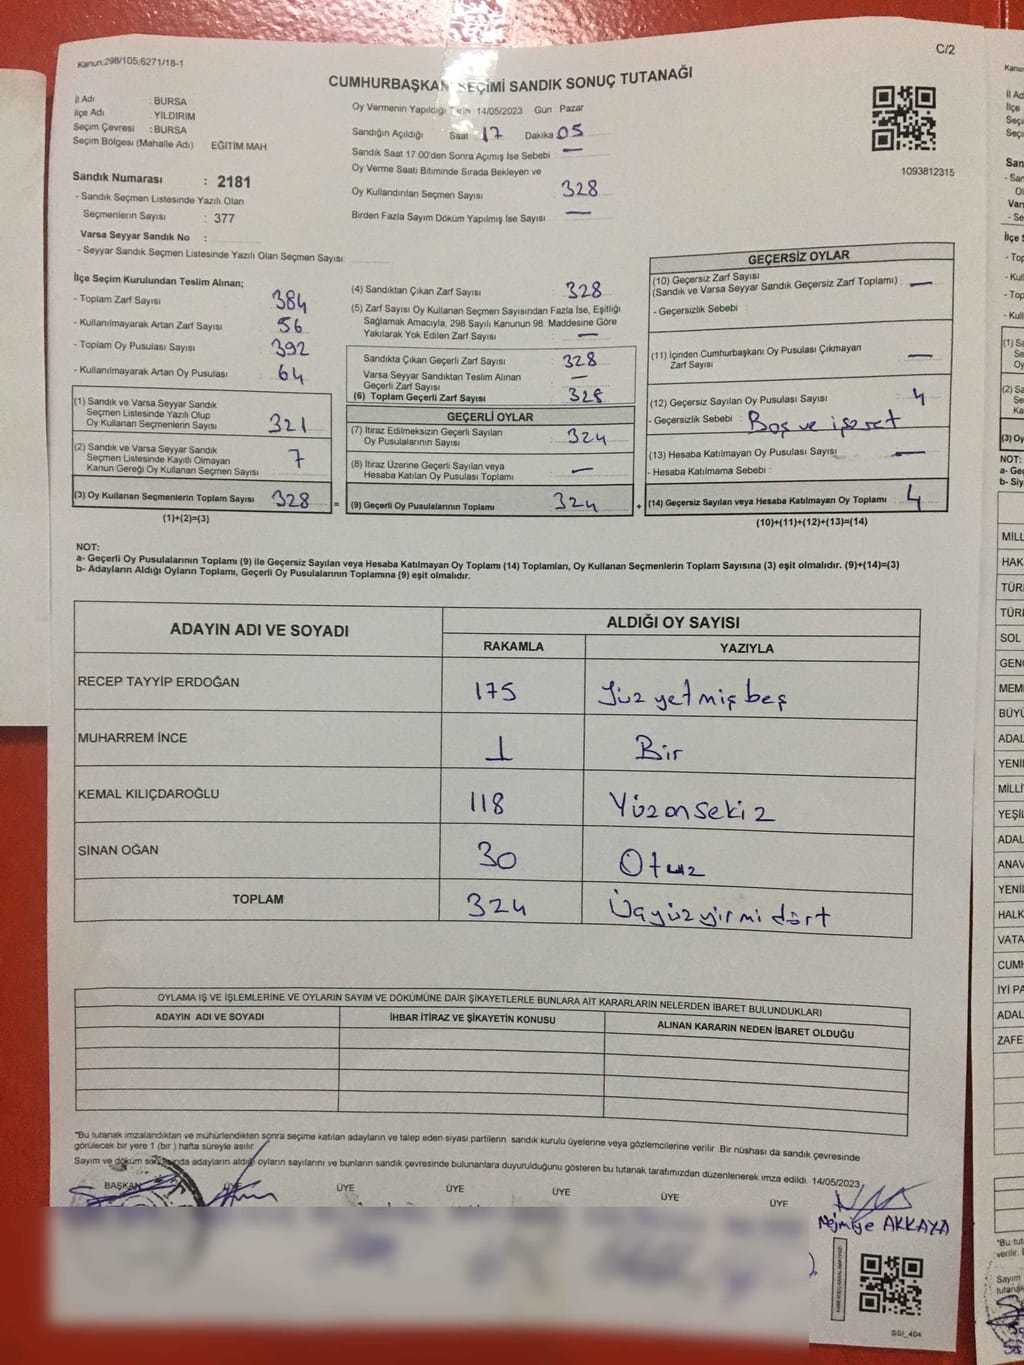 Kanun:298/105;6271/18-1
C/2
CUMHURBAŞKAN SEÇİMİ SANDIK SONUÇ TUTANAĞI
İl Adı : BURSA
İlçe Adı : YILDIRIM
Seçim Çevresi : BURSA
Seçim Bölgesi (Mahalle Adı) EĞİTİM MAH.
Oy Vermenin Yapıldığı Tarih 14/05/2023 Gün Pazar
Sandığın Açıldığı Saat : 17 Dakika 05
Sandık Saat 17.00'den Sonra Açımış İse Sebebi : —
Oy Verme Saati Bitiminde Sırada Bekleyen ve
Oy Kullandırılan Seçmen Sayısı 328
Birden Fazla Sayım Döküm Yapılmış İse Sayısı —
1093812315
Sandık Numarası : 2181
- Sandık Seçmen Listesinde Yazılı Olan
Seçmenlerin Sayısı : 377
Varsa Seyyar Sandık No :
- Seyyar Sandık Seçmen Listesinde Yazılı Olan Seçmen Sayısı:
İlçe Seçim Kurulundan Teslim Alınan;
- Toplam Zarf Sayısı 384
- Kullanılmayarak Artan Zarf Sayısı 56
- Toplam Oy Pusulası Sayısı 392
- Kullanılmayarak Artan Oy Pusulası 64
(1) Sandık ve Varsa Seyyar Sandık
Seçmen Listesinde Yazılı Olup
Oy Kullanan Seçmenlerin Sayısı 321
(2) Sandık ve Varsa Seyyar Sandık
Seçmen Listesinde Kayıtlı Olmayan
Kanun Gereği Oy Kullanan Seçmen Sayısı 7
(3) Oy Kullanan Seçmenlerin Toplam Sayısı 328 =
(1)+(2)=(3)
(4) Sandıktan Çıkan Zarf Sayısı : 328
(5) Zarf Sayısı Oy Kullanan Seçmen Sayısından Fazla İse, Eşitliği
Sağlamak Amacıyla, 298 Sayılı Kanunun 98. Maddesine Göre
Yakılarak Yok Edilen Zarf Sayısı : —
Sandıkta Çıkan Geçerli Zarf Sayısı : 328
Varsa Seyyar Sandıktan Teslim Alınan
Geçerli Zarf Sayısı : —
(6) Toplam Geçerli Zarf Sayısı : 328
GEÇERLİ OYLAR
(7) İtiraz Edilmeksizin Geçerli Sayılan
Oy Pusulalarının Sayısı : 324
(8) İtiraz Üzerine Geçerli Sayılan veya
Hesaba Katılan Oy Pusulası Toplamı : —
(9) Geçerli Oy Pusulalarının Toplamı : 324 +
GEÇERSİZ OYLAR
(10) Geçersiz Zarf Sayısı
(Sandık ve Varsa Seyyar Sandık Geçersiz Zarf Toplamı) : —
- Geçersizlik Sebebi :
(11) İçinden Cumhurbaşkanı Oy Pusulası Çıkmayan
Zarf Sayısı —
(12) Geçersiz Sayılan Oy Pusulası Sayısı : 4
- Geçersizlik Sebebi : Boş ve işaret
(13) Hesaba Katılmayan Oy Pusulası Sayısı —
- Hesaba Katılmama Sebebi :
(14) Geçersiz Sayılan veya Hesaba Katılmayan Oy Toplamı : 4
(10)+(11)+(12)+(13)=(14)
NOT:
a- Geçerli Oy Pusulalarının Toplamı (9) ile Geçersiz Sayılan veya Hesaba Katılmayan Oy Toplamı (14) Toplamları, Oy Kullanan Seçmenlerin Toplam Sayısına (3) eşit olmalıdır. (9)+(14)=(3)
b- Adayların Aldığı Oyların Toplamı, Geçerli Oy Pusulalarının Toplamına (9) eşit olmalıdır.
ADAYIN ADI VE SOYADI
ALDIĞI OY SAYISI
RAKAMLA YAZIYLA
RECEP TAYYİP ERDOĞAN 175 Yüz yetmiş beş
MUHARREM İNCE 1 Bir
KEMAL KILIÇDAROĞLU 118 Yüzonsekiz
SİNAN OĞAN 30 Otuz
TOPLAM 324 Üçyüzyirmi dört
OYLAMA İŞ VE İŞLEMLERİNE VE OYLARIN SAYIM VE DÖKÜMÜNE DAİR ŞİKAYETLERLE BUNLARA AİT KARARLARIN NELERDEN İBARET BULUNDUKLARI
ADAYIN ADI VE SOYADI İHBAR İTİRAZ VE ŞİKAYETİN KONUSU ALINAN KARARIN NEDEN İBARET OLDUĞU
*Bu tutanak imzalandıktan ve mühürlendikten sonra seçime katılan adayların ve talep eden siyasi partilerin sandık kurulu üyelerine veya gözlemcilerine verilir. Bir nüshası da sandık çevresinde
görülecek bir yere 1 (bir ) hafta süreyle asılır.
Sayım ve döküm adayların aldığı oyların sayılarını ve bunların sandık çevresinde bulunanlara duyurulduğunu gösteren bu tutanak tarafımızdan düzenlenerek imza edildi. 14/05/2023
BAŞKAN ÜYE ÜYE ÜYE ÜYE ÜYE ÜYE
Nejmiye AKKAYA
SSİ_404